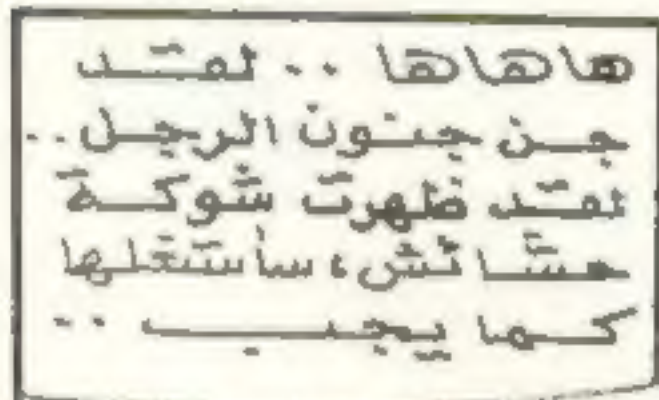 هاهاها .. لقد
جن جنون الرجل ..
لقد ظهرت شوكة
حشائش، سأستغلها
كما يجب ..